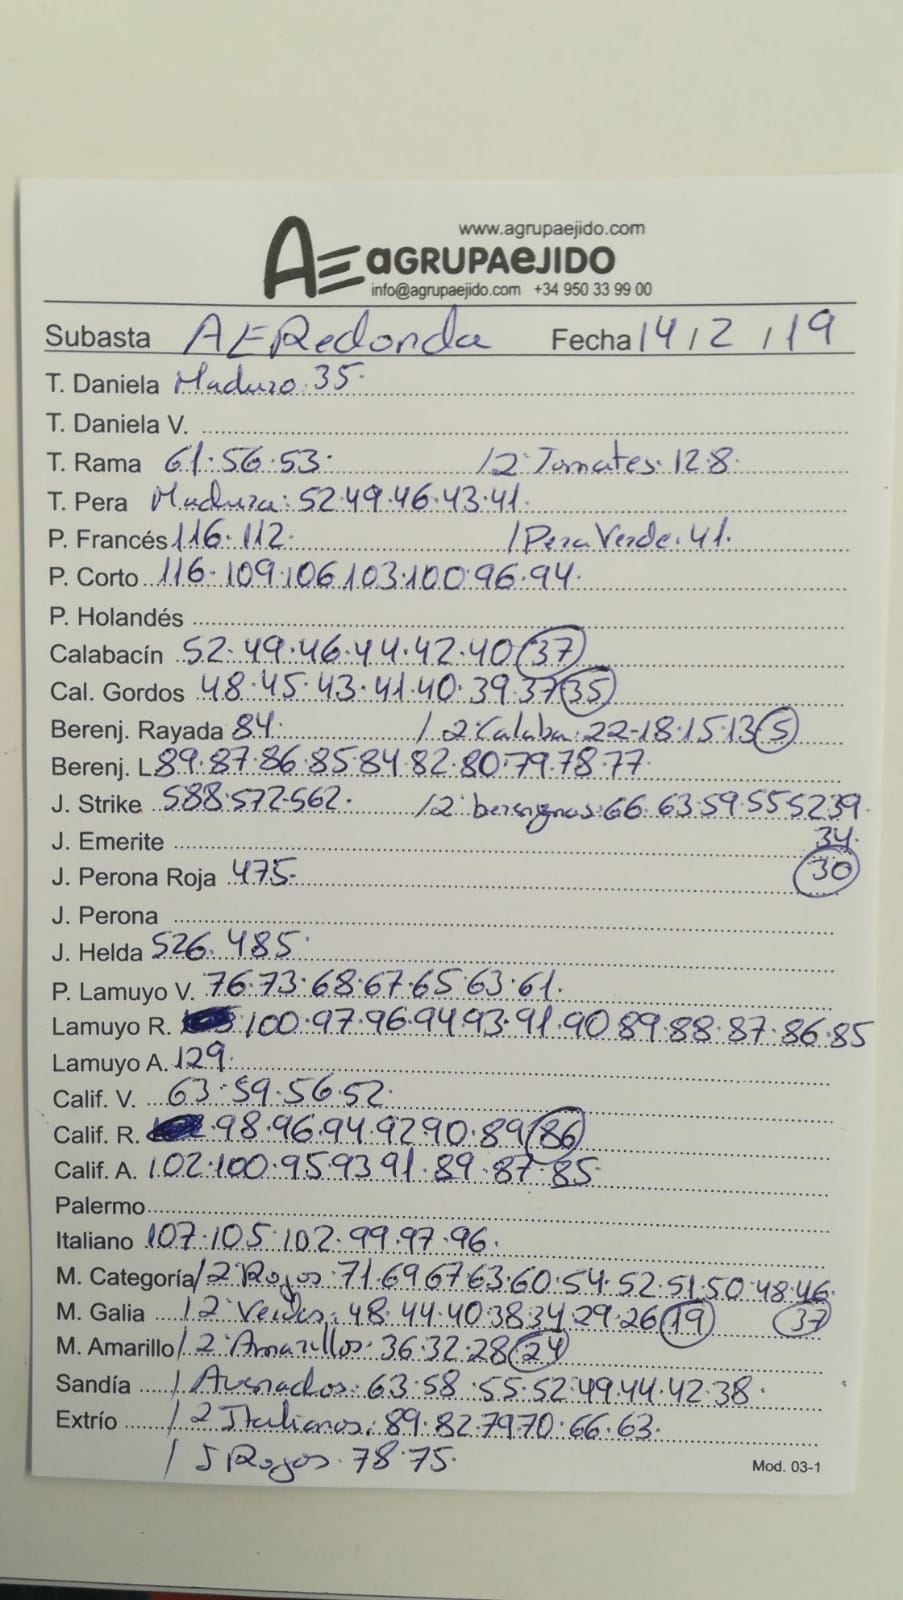 www.agrupaejido.com
AE aGRUPAeJIDO
info@agrupaejido.com +34 950 33 99 00
Subasta AERedonda Fecha 14/2/19
T. Daniela Maduro. 35.
T. Daniela V.
T. Rama 61.56.53. / 2ª Tomates. 12.8.
T. Pera Madura: 52.49.46.43.41.
P. Francés 116.112. / Pera Verde. 41.
P. Corto 116-109.106.103.100.96.94.
P. Holandés
Calabacín 52.49.46.44.42.40 37
Cal. Gordos 48.45.43.41.40.39.37 35
Berenj. Rayada 84. / 2ª Calaba. 22-18.15.13 5
Berenj. L 89.87.86.85.84.82.80.79.78.77.
J. Strike 588.572.562. / 2ª berengnas: 66.63.59.55.52.39.
J. Emerite 34.
J. Perona Roja 475- 30
J. Perona
J. Helda 526.485.
P. Lamuyo V. 76.73.68.67.65.63.61.
Lamuyo R. 100.97.96.94.93.91.90.89.88.87.86.85
Lamuyo A. 129.
Calif. V. 63.59.56.52.
Calif. R. 98.96.94.92.90.89 86
Calif. A. 102.100.95.93.91.89.87.85.
Palermo
Italiano 107.105.102.99.97.96.
M. Categoría / 2ª Rojos: 71.69.67.63.60.54.52.51.50.48.46.
M. Galia / 2ª Verdes: 48.44.40.38.34.29.26 19 37
M. Amarillo / 2ª Amarillos. 36.32.28 24
Sandía / Asurados: 63.58.55.52.49.44.42.38.
Extrío / 2 Italianos: 89.82.79.70.66.63.
/ J Rojos. 78.75.
Mod. 03-1